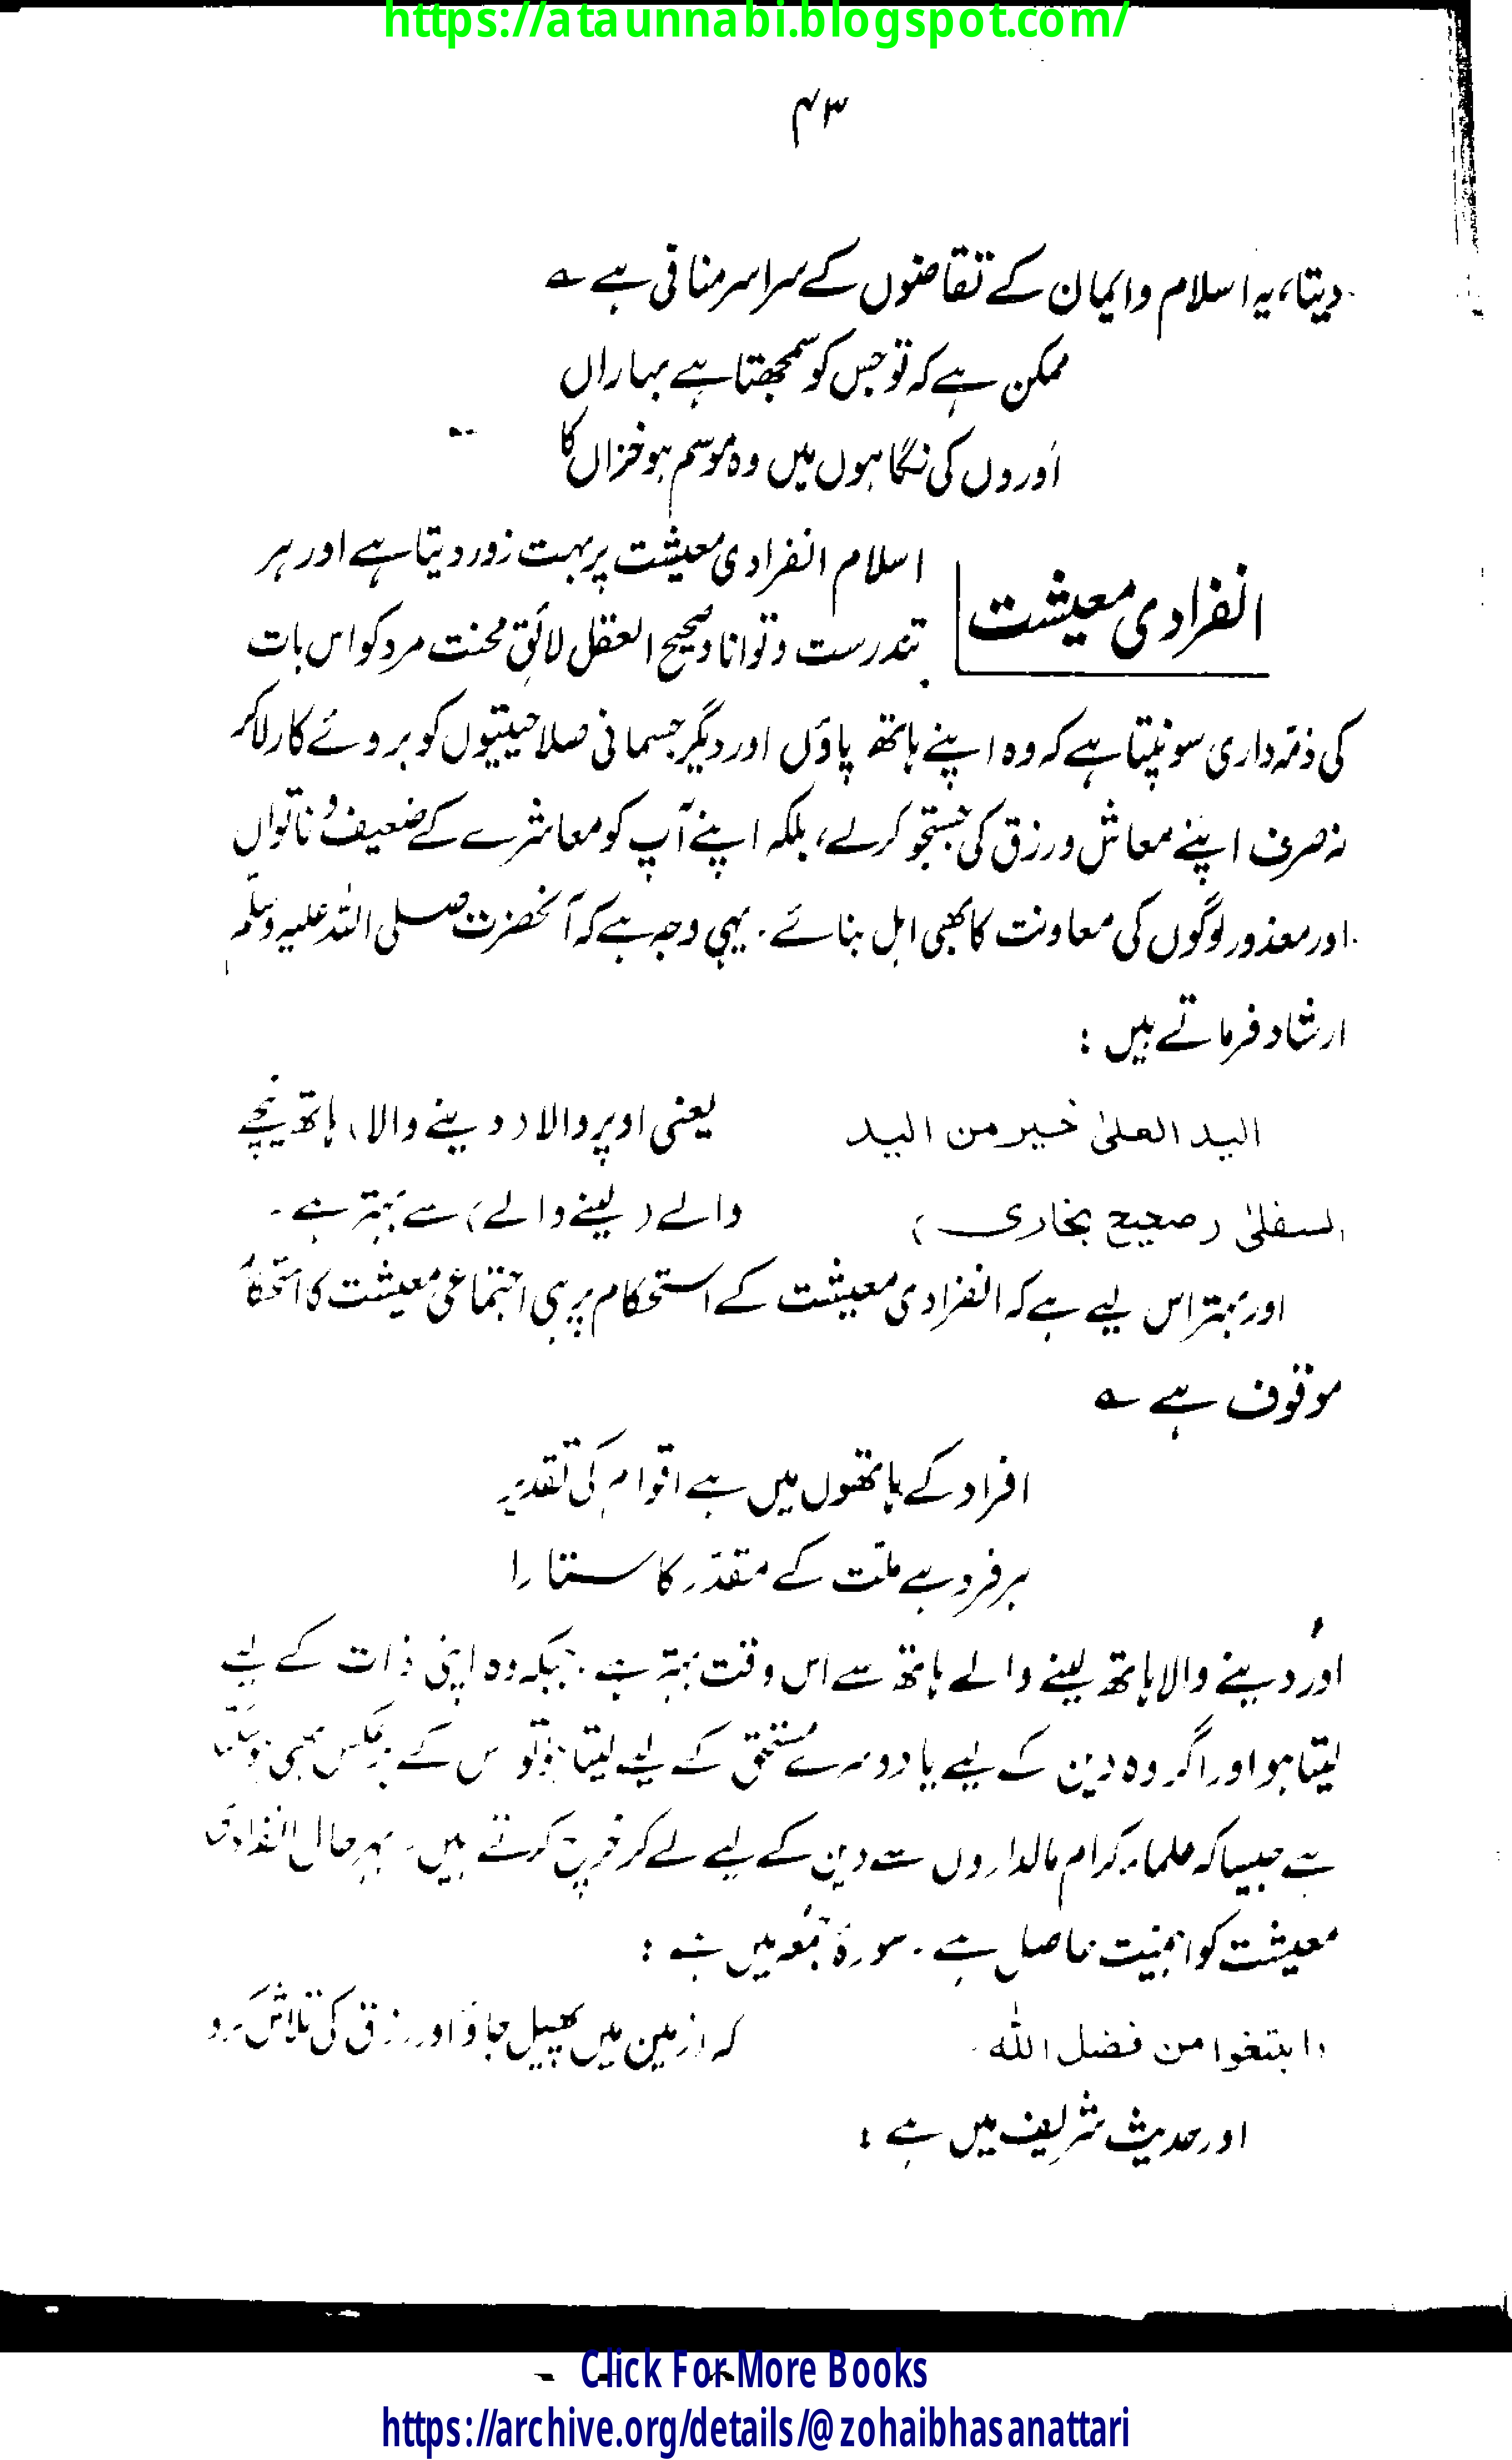 https://ataunnabi.blogspot.com/
۴۳
دیتا، یہ اسلام وایمان کے تقاضوں کے سراسر منافی ہے ؎
ممکن ہے کہ تو جس کو سمجھتا ہے بہاراں
اَوروں کی نگاہوں میں وہ موسم ہو خزاں کا
انفرادی معیشت
اسلام انفرادی معیشت پر بہت زور دیتا ہے اور ہر
تندرست وتوانا و صحیح العقل لائق محنت مرد کو اس بات
کی ذمّہ داری سونپتا ہے کہ وہ اپنے ہاتھ پاؤں اور دیگر جسمانی صلاحیتیوں کو بروئے کار لاکر
نہ صرف اپنے معاش ورزق کی جستجو کرلے، بلکہ اپنے آپ کو معاشرے کے ضعیف و ناتواں
اور معذور لوگوں کی معاونت کا بھی اہل بنائے۔ یہی وجہ ہے کہ آنحضرت صلی اللہ علیہ وسلّم
ارشاد فرماتے ہیں :
الید العلیٰ خیر من الید
یعنی اوپر والا (دینے والا) ہاتھ نیچے
السفلیٰ (صحیح بخاری)
والے (لینے والے) سے بہتر ہے۔
اور بہتر اس لیے ہے کہ انفرادی معیشت کے استحکام پر ہی اجتماعی معیشت کا استحکام
موقوف ہے ؎
افراد کے ہاتھوں میں ہے اقوام کی تقدیر
ہر فرد ہے ملّت کے مقدّر کا ستارا
اور دینے والا ہاتھ لینے والے ہاتھ سے اس وقت بہتر ہے۔ جبکہ وہ اپنی ذات کے لیے
لیتا ہو اور اگر وہ دین کے لیے یا دوسرے مُستحق کے لیے لیتا ہو تو اس کے برعکس بھی ہو سکتا
ہے جیساکہ علماء کرام مالداروں سے دین کے لیے لے کر خرچ کرتے ہیں۔ بہر حال انفرادی
معیشت کو اہمیت حاصل ہے۔ سورۂ جمُعہ میں ہے :
وابتغوا من فضل اللّٰه
کہ زمین میں پھیل جاؤ اور رزق کی تلاش کرو
اور حدیث شریف میں ہے :
Click For More Books
https://archive.org/details/@zohaibhasanattari